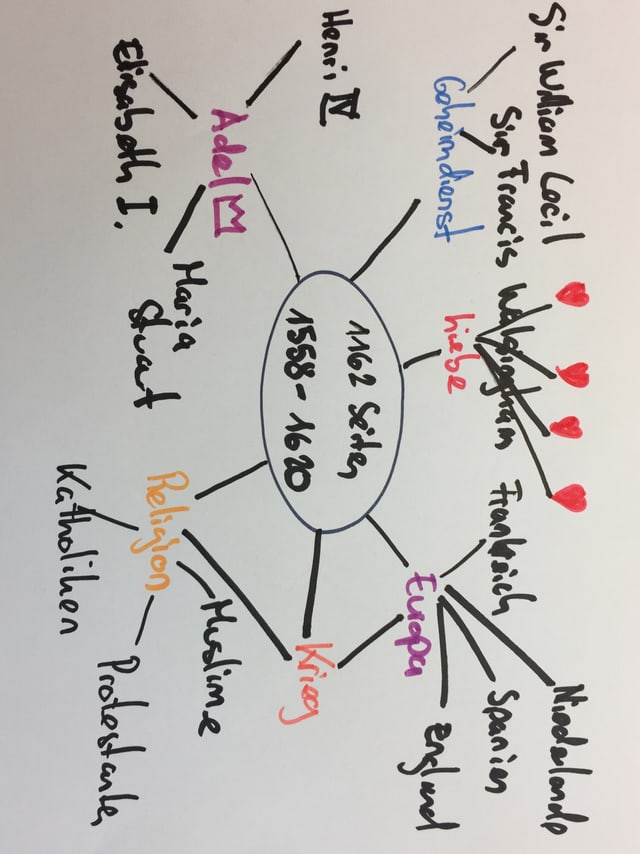 1162 Seiten
1558 - 1620
Geheimdienst
Sir William Cecil
Sir Francis Walsingham
Liebe
Europa
Frankreich
Niederlande
Spanien
England
Krieg
Religion
Muslime
Protestanten
Katholiken
Adel
Henri IV
Elisabeth I.
Maria
Stuart